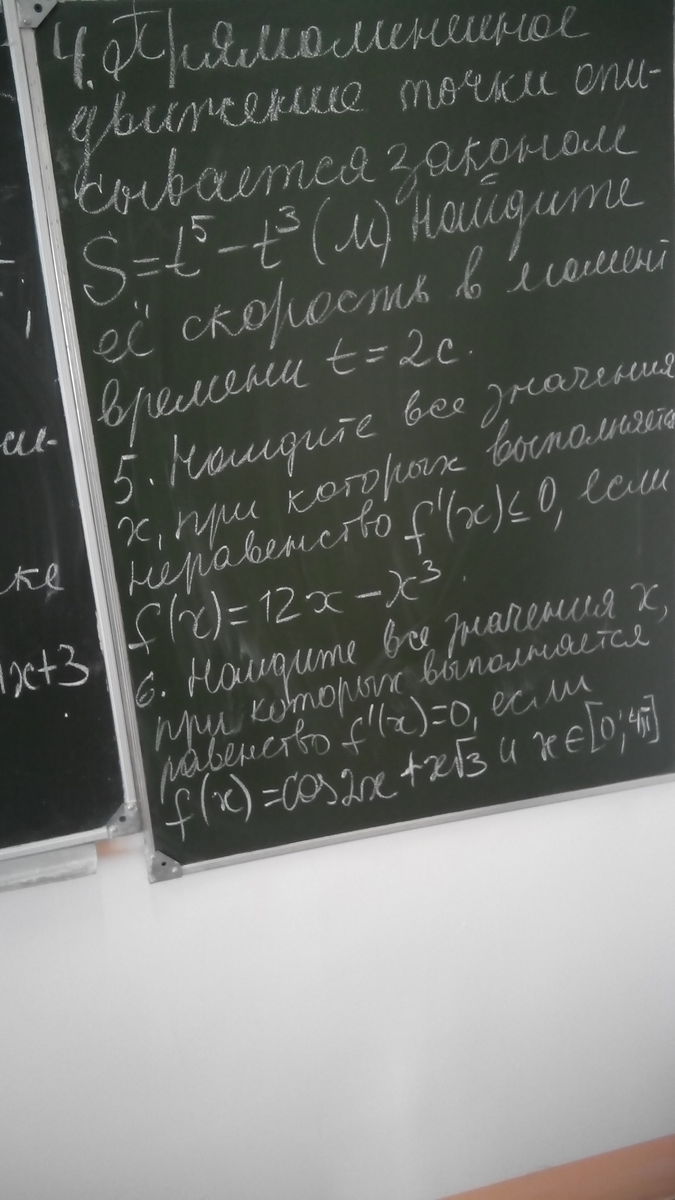 4. Прямолинейное
движение точки опи-
сывается законом
S=t⁵-t³(м) Найдите
её скорость в момент
времени t=2c.
5. Найдите все значения
x, при которых выполняется
неравенство f'(x)≤0, если
f(x)=12x-x³.
6. Найдите все значения x,
при которых выполняется
равенство f'(x)=0, если
f(x)=cos2x+x√3 и x∈[0;4π]
ке
x+3